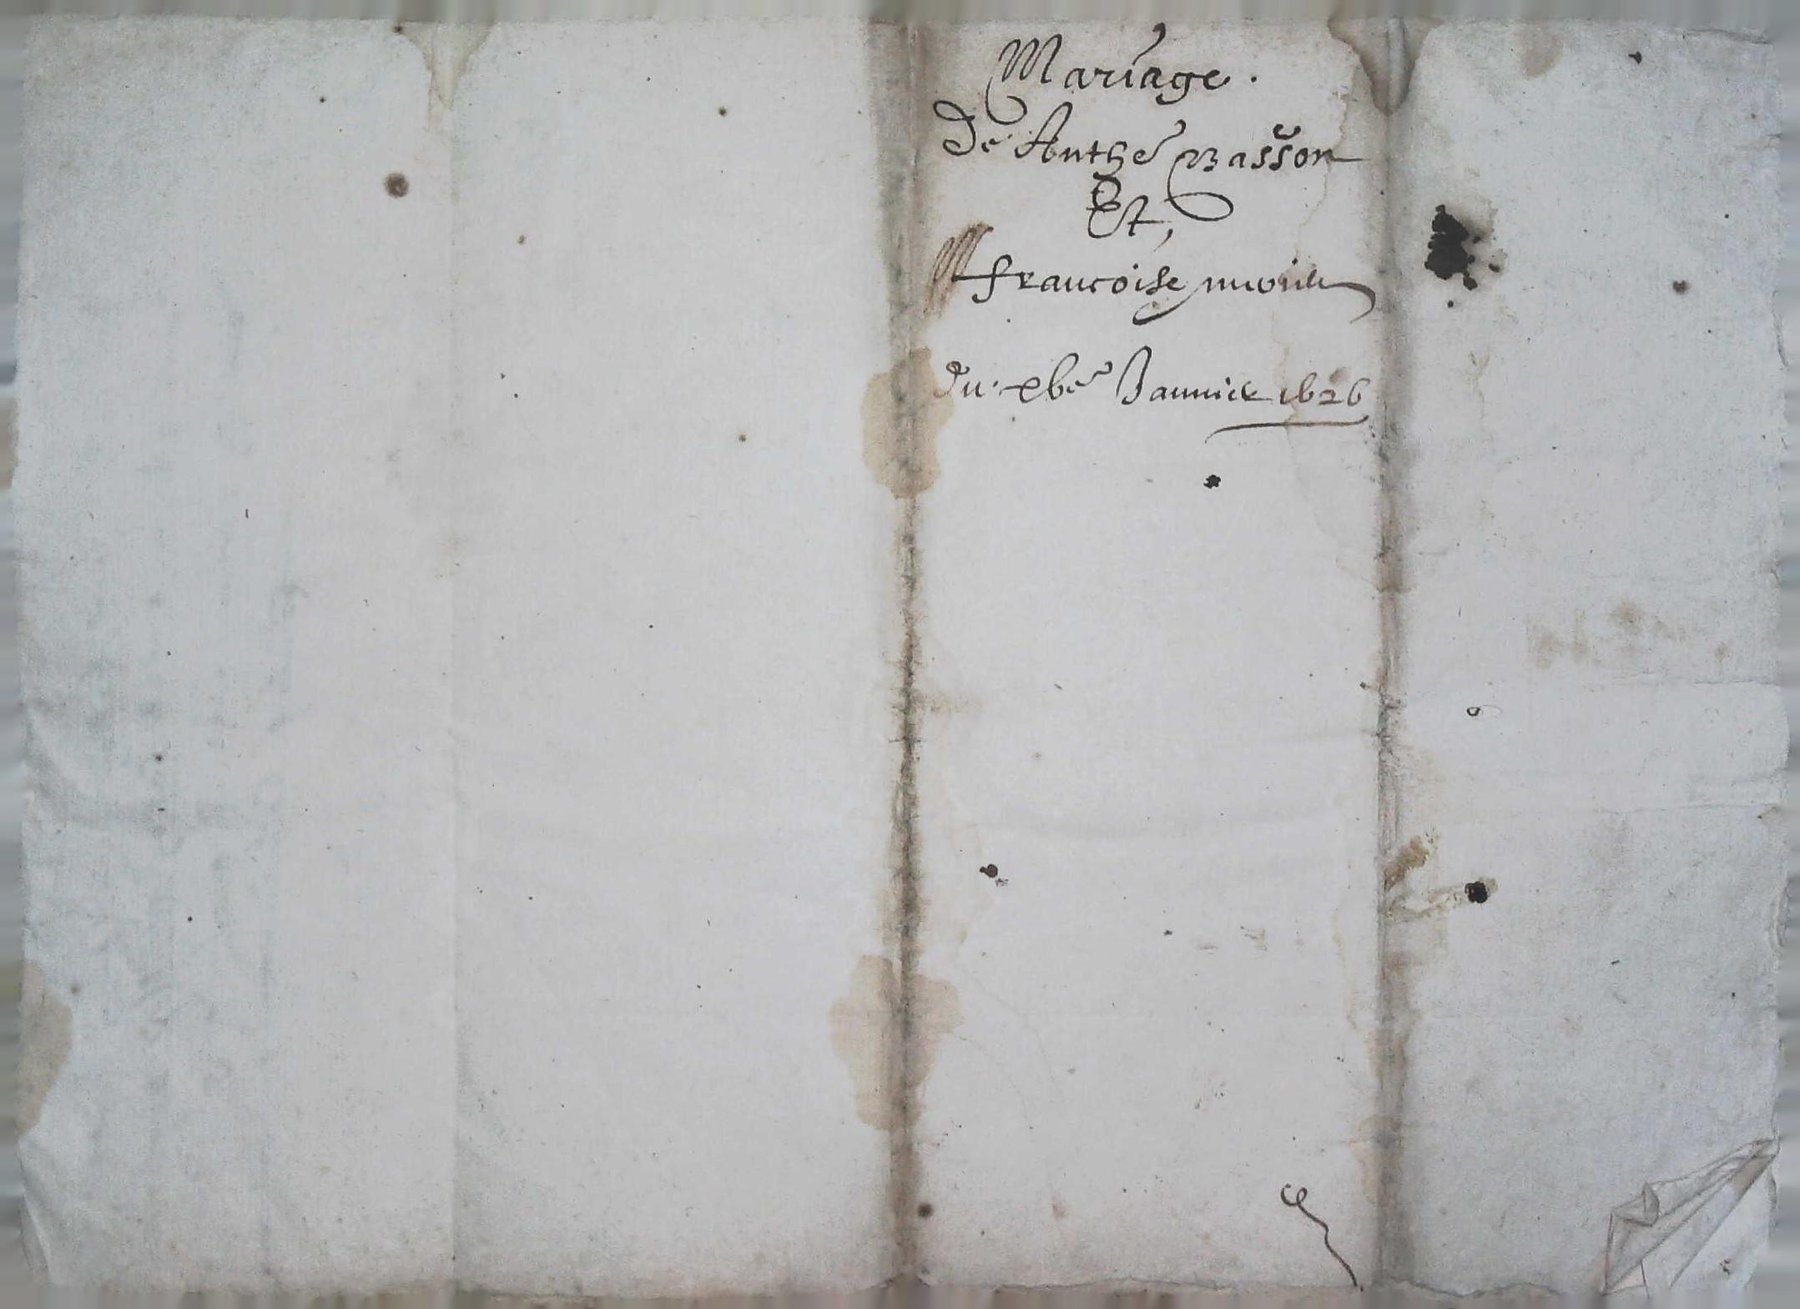 Mariage.
De Anthe Basson
Et,
francoise
du xbe Januier 1626